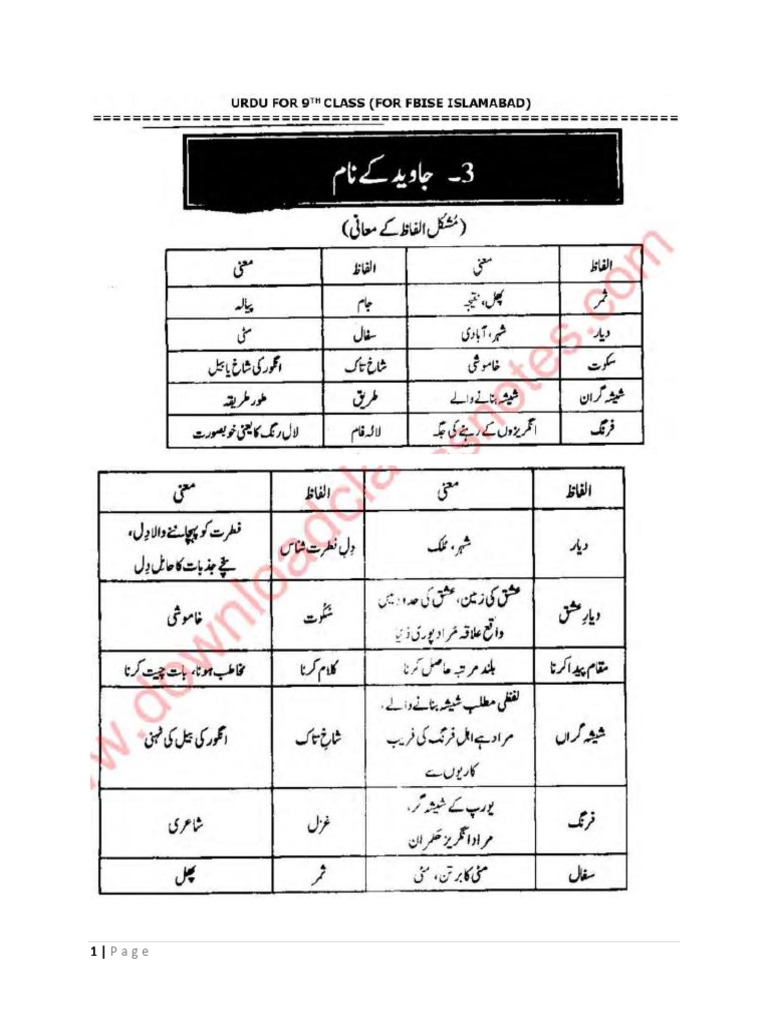 URDU FOR 9TH CLASS (FOR FBISE ISLAMABAD)
================================================================
3۔ جاوید کے نام
(مُشکل الفاظ کے معانی)
الفاظ معنی الفاظ معنی
ثمر پھل، نتیجہ جام پیالہ
دیار شہر، آبادی سفال مٹی
سکوت خاموشی شاخ تاک انگور کی شاخ یا بیل
شیشہ گران شیشہ بنانے والے طریق طور طریقہ
فرنگ انگریزوں کے رہنے کی جگہ لالہ فام لال رنگ کا یعنی خوبصورت
الفاظ معنی الفاظ معنی
دیار شہر، مُلک دِلِ فطرت شناس فطرت کو پہچاننے والا دِل،
سچے جذبات کا حامل دِل
دیارِ عشق عشق کی زمین، عشق کی حدود میں
واقع علاقہ مُراد پوری دُنیا سَکُوت خاموشی
مقام پیدا کرنا بلند مرتبہ حاصل کرنا کلام کرنا مخاطب ہونا، بات چیت کرنا
شیشہ گراں لفظی مطلب شیشہ بنانے والے،
مراد ہے اہل فرنگ کی فریب
کاریوں سے شاخِ تاک انگور کی بیل کی ٹہنی
فرنگ یورپ کے شیشہ گر،
مراد انگریز حکمران غزل شاعری
سفال مٹی کا برتن، مٹی ثمر پھل
www.downloadclassnotes.com
1 | Page